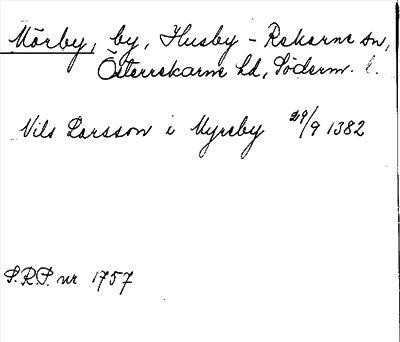 Mörby, by, Husby-Rekarne sn,
Österrekarne hd, Söderm. l.
Nils Larsson i Myreby 29/9 1382
S.R.P. nr 1757